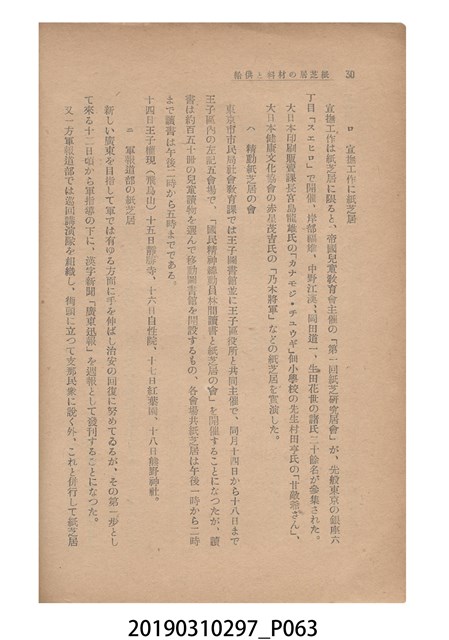 30 紙芝居の材料と供給
ロ 宣撫工作に紙芝居
宣撫工作は紙芝居に限ると、帝國兒童敎育會主催の「第一回紙芝研究居會」が、先般東京の銀座六
丁目「スエヒロ」で開催、岸部福雄、中野江漢、岡田道一、生田花世の諸氏二十餘名が參集された。
大日本印刷販賣課長宮島龍雄氏の「カナモジ・チュウギ」佃小學校の先生村田亨氏の「甘藷爺さん」、
大日本健康文化協會の赤星茂吉氏の「乃木將軍」などの紙芝居を實演した。
ハ 精動紙芝居の會
東京市市民局社會敎育課では王子圖書館並に王子區役所と共同主催で、同月十四日から十八日まで
王子區內の左記五會場で、「國民精神總動員林間讀書と紙芝居の會」を開催することになつたが、讀
書は約百五十册の兒童讀物を選んで移動圖書館を開設するもの、各會場共紙芝居は午後一時から二時
まで讀書は午後二時から五時までである。
十四日王子權現(飛鳥山)十五日靜勝寺、十六日自性院、十七日紅葉園、十八日熊野神社。
ニ 軍報道部の紙芝居
新しい廣東を目指して軍では有ゆる方面に手を伸ばし治安の回復に努めてゐるが、その第一步とし
て來る十二日頃から軍指導の下に、漢字新聞「廣東迅報」を週報として發刊することになつた。
又一方軍報道部では巡回講演隊を組織し、街頭に立つて支那民衆に說く外、これと併行して紙芝居
20190310297_P063